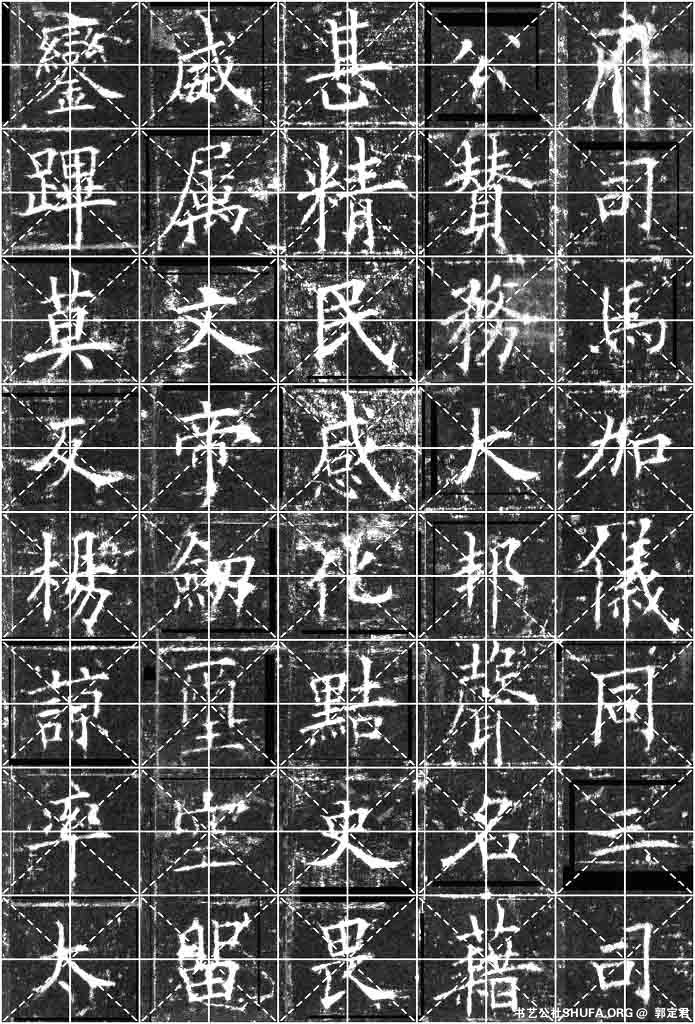 府司馬加儀同三司
公贊務大邦聲名藉
甚精民感化黠吏畏
威属文帝劒璽空留
鑾蹕莫反楊諒率太
书艺公社SHUFA.ORG @ 郭定君